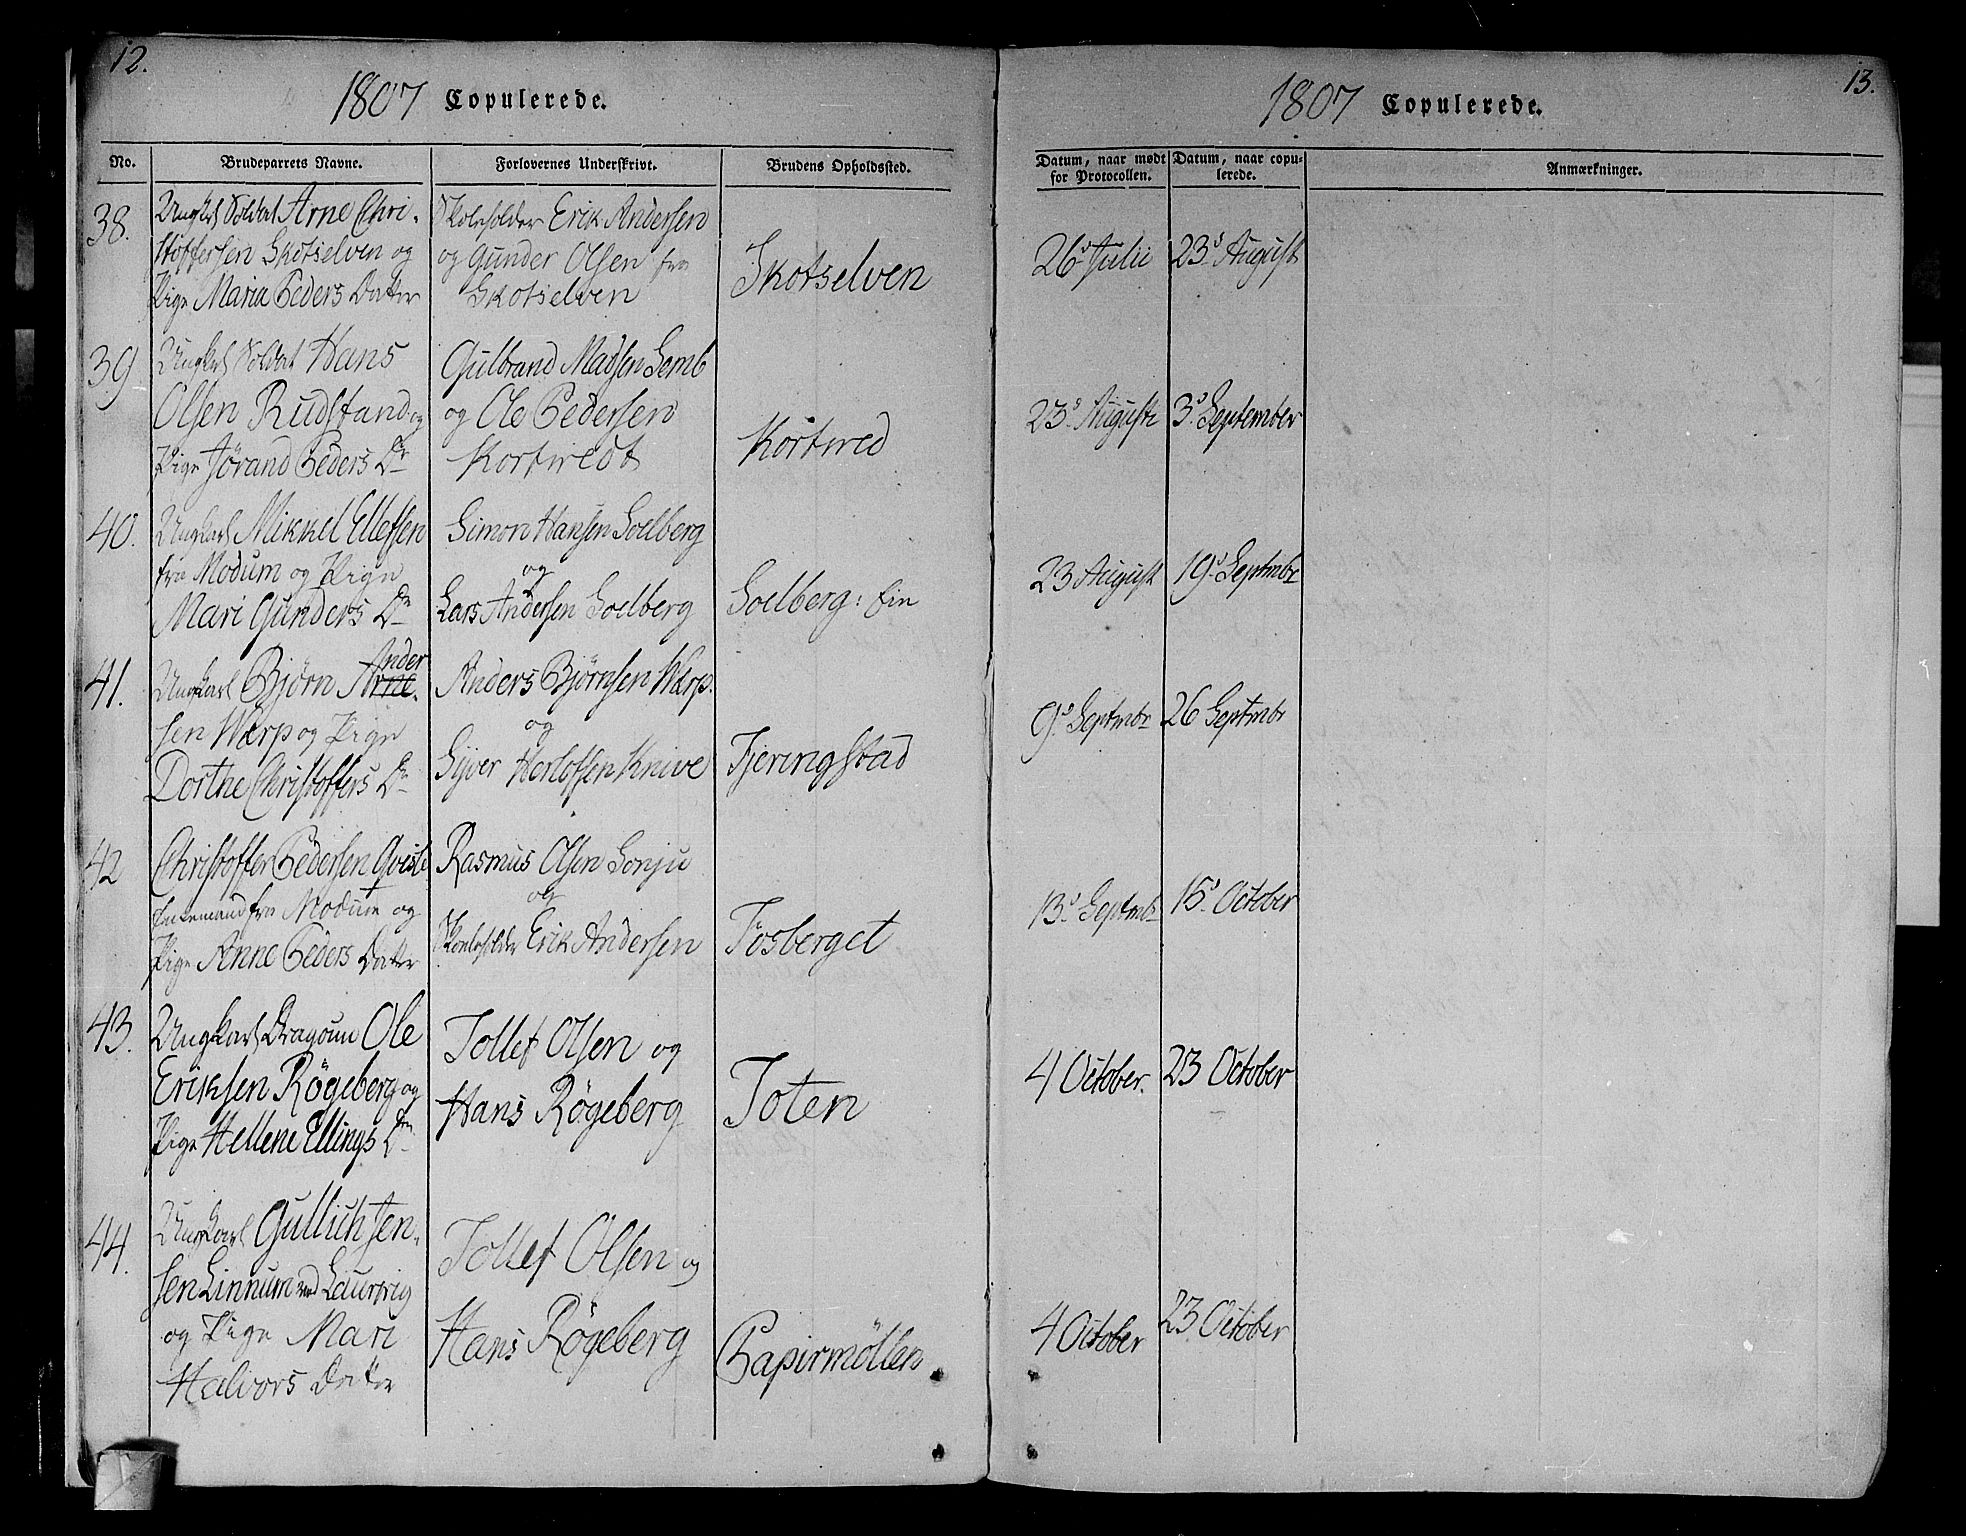 12.
1807 Copulerede.
No. Brudeparrets Navne. Forlovernes Underskrivt. Brudens Opholdssted.
38.
Ungkarl Soldat Arne Chri-
stoffersen Skotselven og
Pige Maria Peders Datter
Skoleholder Erik Andersen
og Gunder Olsen fra
Skotselven
Skotselven
39
Ungkarl Soldat Hans
Olsen Rudstand og
Pige Jørand Peders Dr
Gulbrand Madsen Semb
og Ole Pedersen
Kortvedt
Kortved
40.
Ungkarl Mikkel Ellefsen
fra Modum og Pige
Mari Gunders Dr
Simon Hansen Soelberg
og
Lars Andersen Soelberg
Soelberg: Eie
41.
Ungkarl Bjørn Arne- Ander
sen Wærp og Pige
Dorthe Christoffers Dr
Anders Bjørnsen Wærp.
og
Syver Herlofsen Knive
Tjeringstad
42
Christoffer Pedersen
Enkemand fra Modum og
Pige Anne Peders Datter
Rasmus Olsen Sonju
og
Skoleholder Erik Andersen
Fosberget
43.
Ungkarl Dragoun Ole
Eriksen Røgeberg og
Pige Hellene Ellings Dr
Tollef Olsen og
Hans Røgeberg
Toten
44.
Ungkarl Gullich Jen-
sen Linnum ved Laurvig
og Pige Mari
Halvors Datter
Tollef Olsen og
Hans Røgeberg
Papirmöllen
13.
1807 Copulerede.
Datum, naar mødt for Protocollen. Datum, naar copulerede. Anmærkninger.
26 Julii 23 August
23 August 3 September
23 August 19 Septmbr
9 Septmbr 26 Septmbr
13 Septmbr 15 October
4 October. 23 October
4 October 23 October